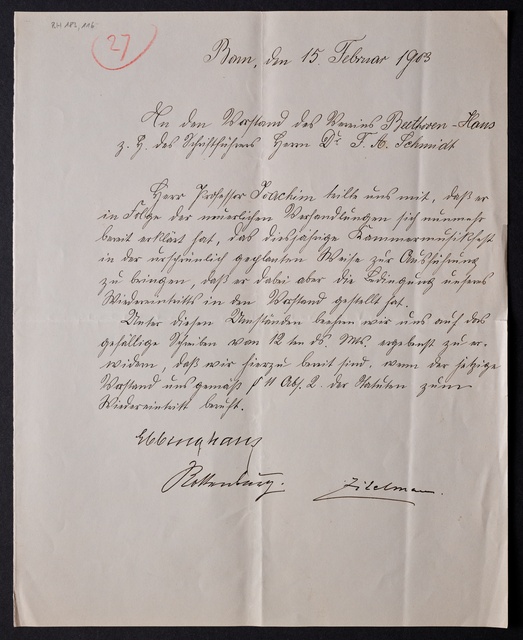 RH 182, 116
27
Bonn, den 15. Februar 1903
An den Vorstand des Vereins Beethoven-Haus
z. H. des Schriftführers Herrn Dr F. A. Schmidt
Herr Professor Joachim teilte uns mit, daß er
in Folge der neuerlichen Verhandlungen sich nunmehr
bereit erklärt hat, das diesjährige Kammermusikfest
in der ursprünglich geplanten Weise zur Ausführung
zu bringen, daß er dabei aber die Bedingung unseres
Wiedereintritts in den Vorstand gestellt hat.
Unter diesen Umständen beehren wir uns auf das
gefällige Schreiben vom 12 ten ds. Mts. ergebenst zu er-
widern, daß wir hierzu bereit sind, wenn der jetzige
Vorstand uns gemäß § 11 Abs. 2. der Statuten zum
Wiedereintritt beruft.
Ebbinghaus
Rottenburg.
Zitelmann.